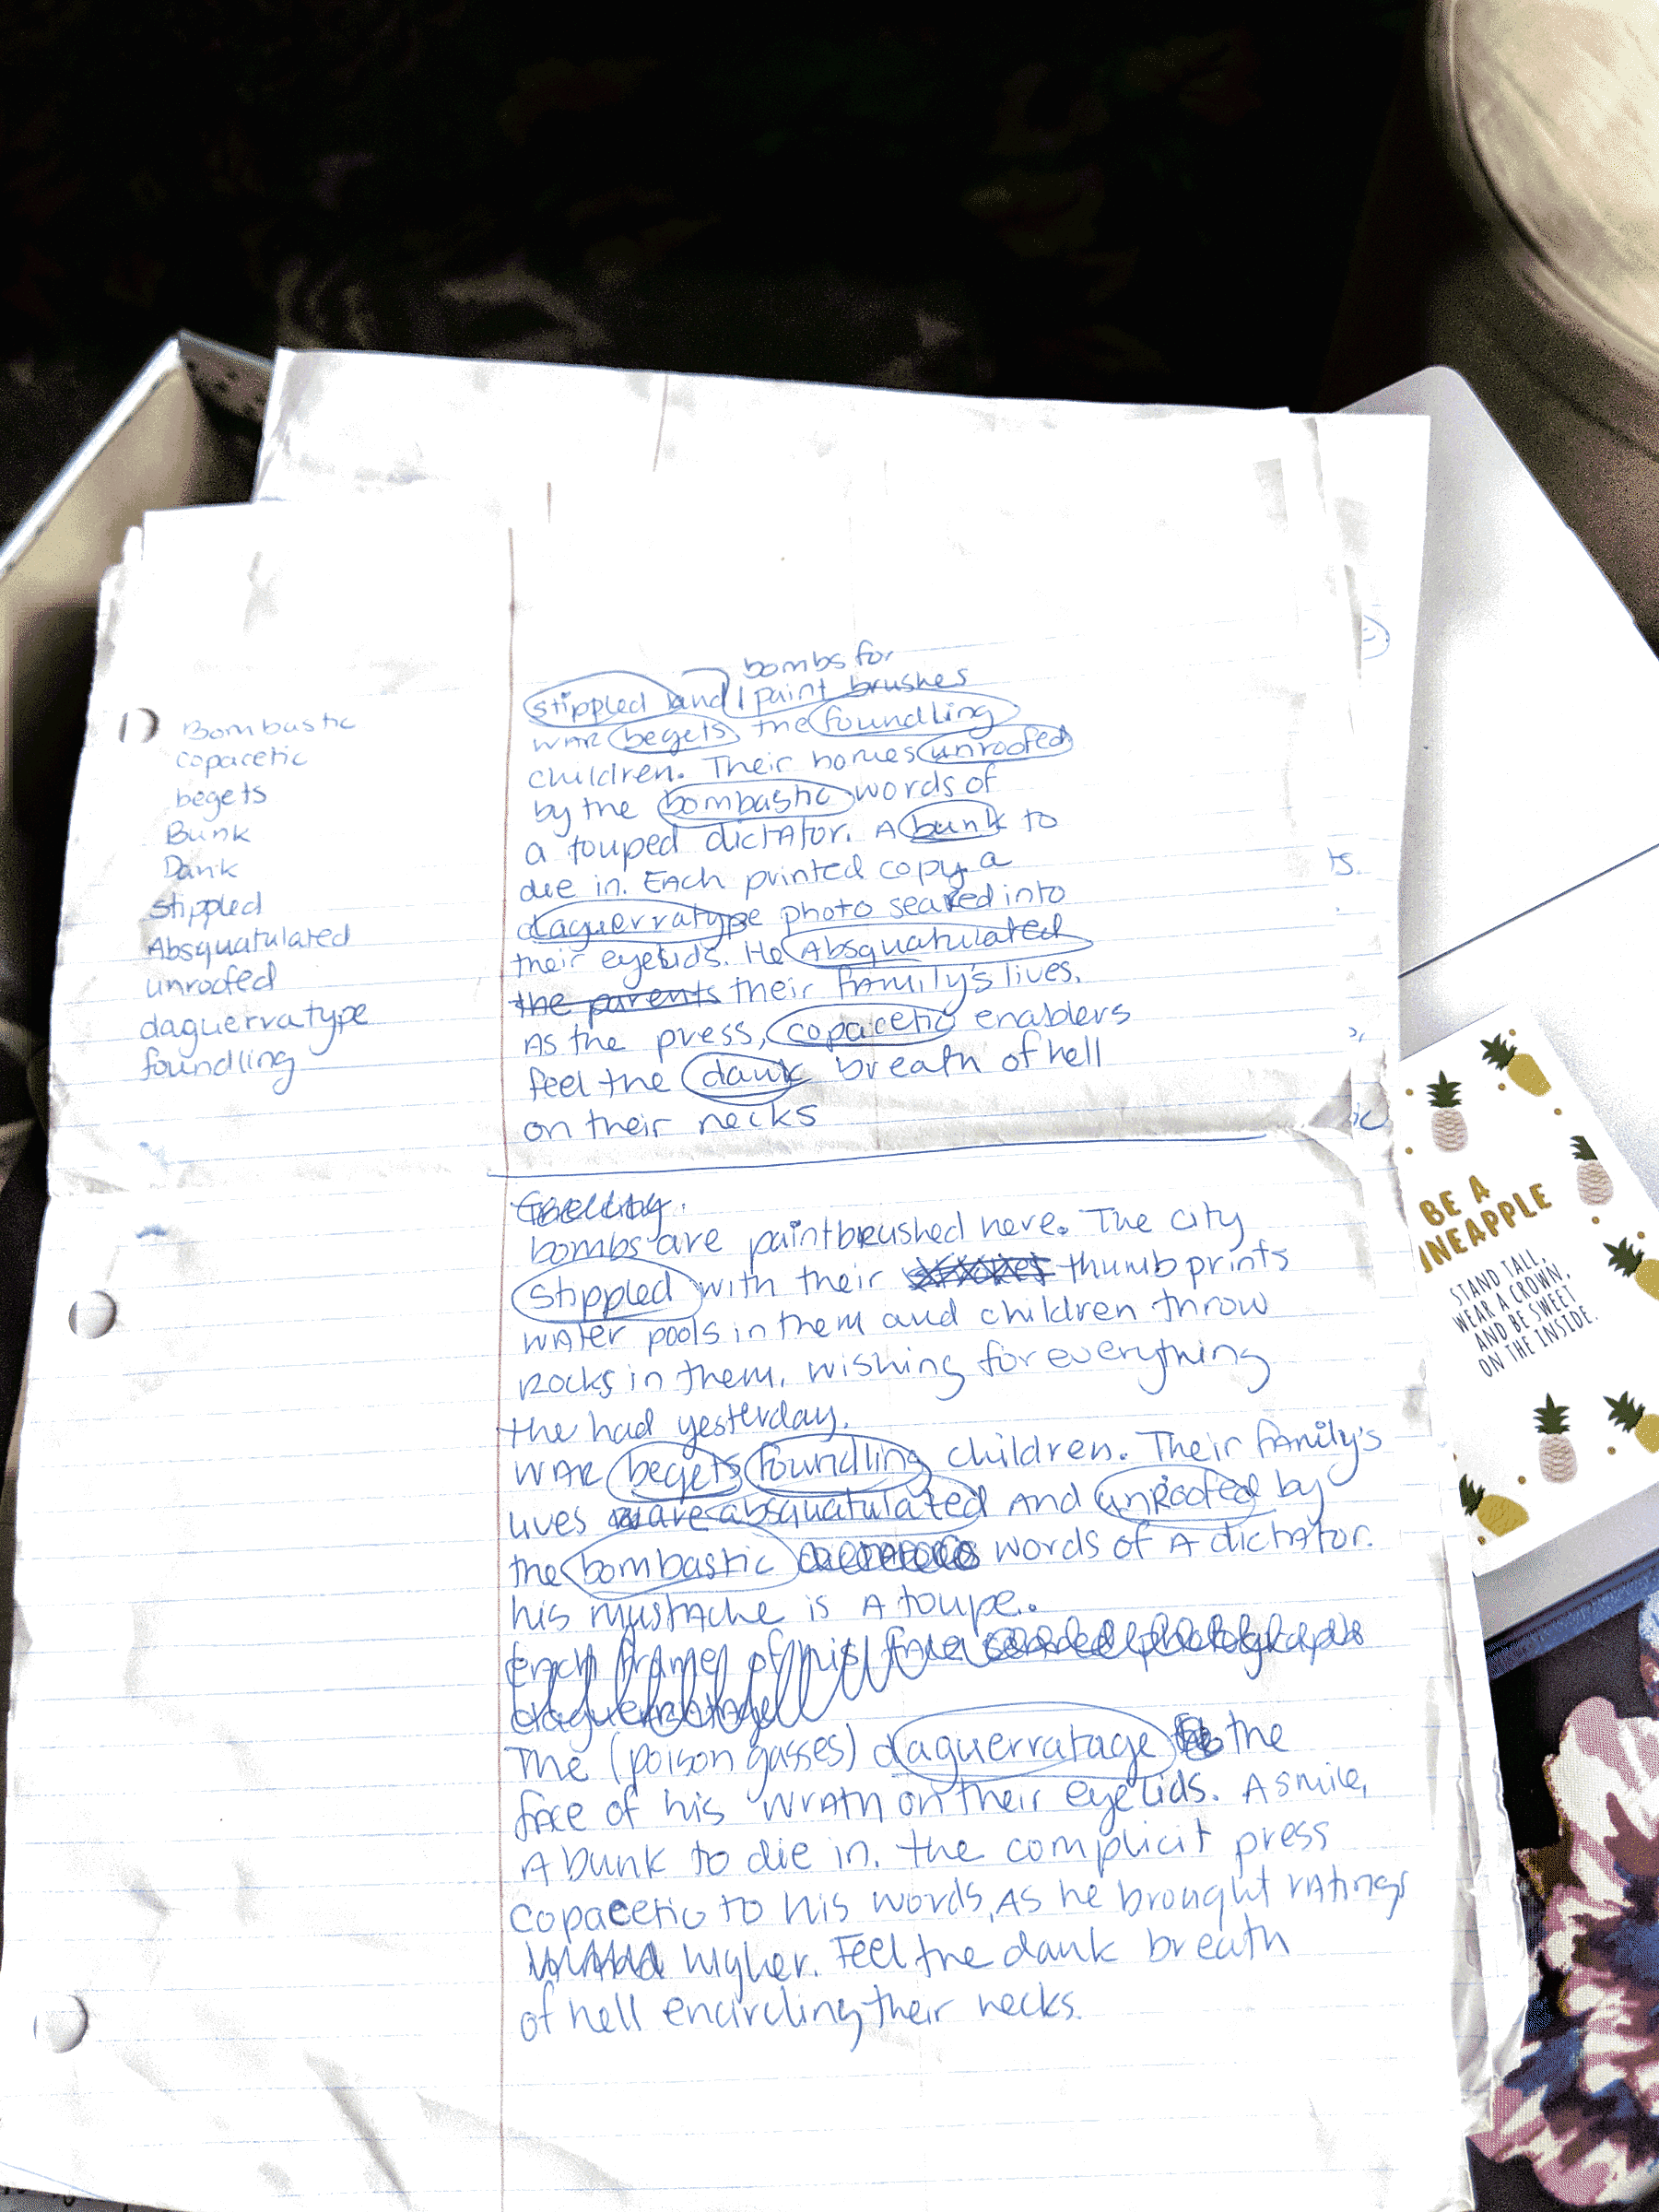 Bombastic
copacetic
begets
Bunk
Dank
stippled
Absquatulated
unroofed
daguerratype
foundling
bombs for
stippled and paint brushes
WAR begets the foundling
children. Their homes unroofed
by the bombastic words of
a touped dictator. A bunk to
die in. Each printed copy a
daguerratype photo seared into
their eyelids. He Absquatulated
the parents their family's lives.
As the press, copacetic enablers
feel the dank breath of hell
on their necks
bombs are paintbrushed here. The city
stippled with their thumbprints
water pools in them and children throw
rocks in them, wishing for everything
the had yesterday.
WAR begets foundling children. Their family's
lives are absquatulated and unroofed by
the bombastic words of A dictator.
his mustache is A toupe.
Each frame of his face
The (poison gasses) daguerratage the
face of his wrath on their eyelids. A smile,
A bunk to die in. the complicit press
copacetic to his words, As he brought ratings
higher. Feel the dank breath
of hell encircling their necks.
ts.
ic
BE A
INEAPPLE
STAND TALL,
WEAR A CROWN,
AND BE SWEET
ON THE INSIDE.